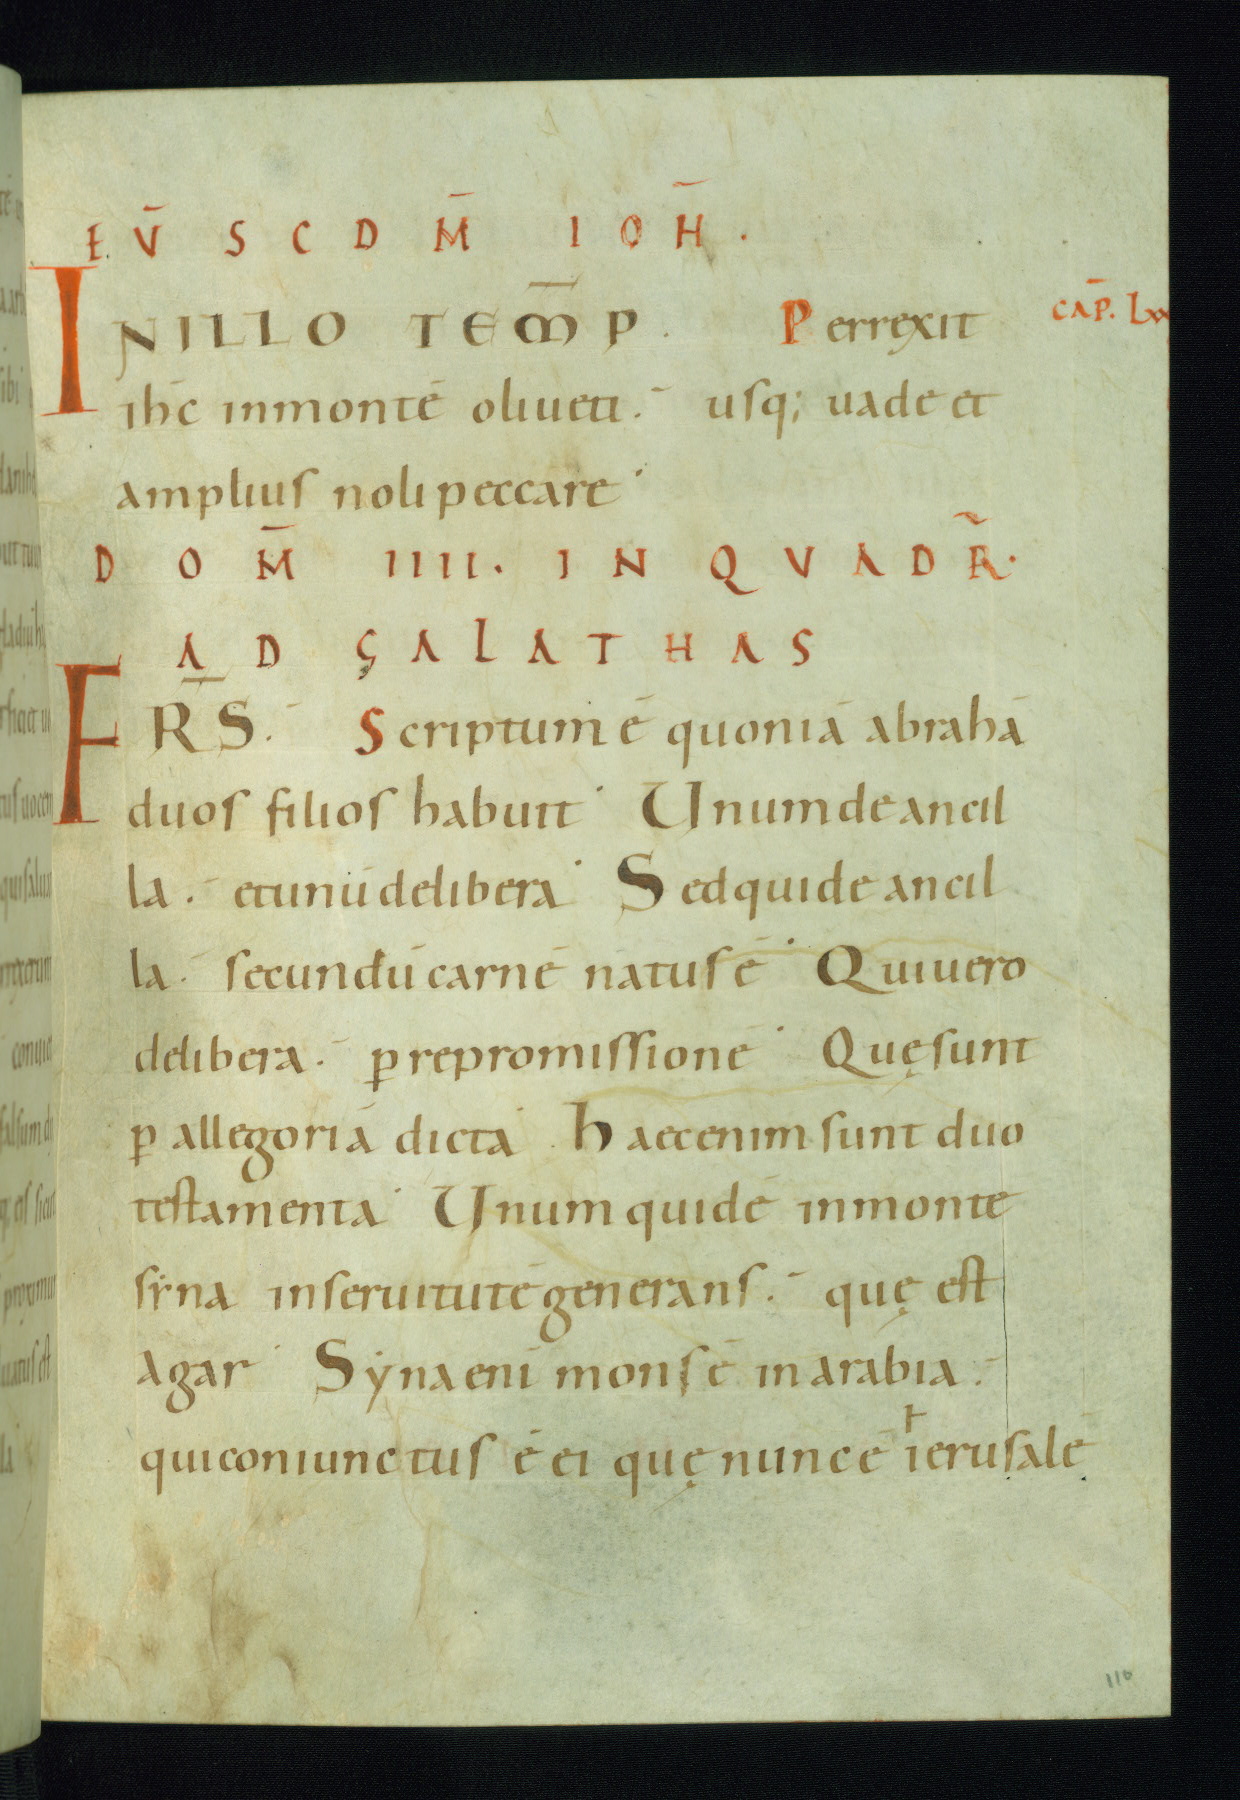 EV̄ SCDM̄ IOH̄.
INILLO TEM̄P. Perrexit
CAP̄. Lxx
ih̄c inmontē oliueti. usq; uade et
amplius noli peccare
DOM̄ IIII. IN QVADR̄.
AD GALATHAS
FR̄S. Scriptum ē quoniā abrahā
duos filios habuit Unum de ancil
la. et unū de libera Sed qui de ancil
la. secundū carnē natus ē Qui uero
de libera. ꝑ repromissionē Quę sunt
ꝑ allegoriā dicta. haec enim sunt duo
testamenta Unum quidē inmonte
sẏna inseruitutē generans. quę est
agar Sẏna eni mons ē in arabia.
qui coniunctus ē ei quę nunc ē ierusalē
110